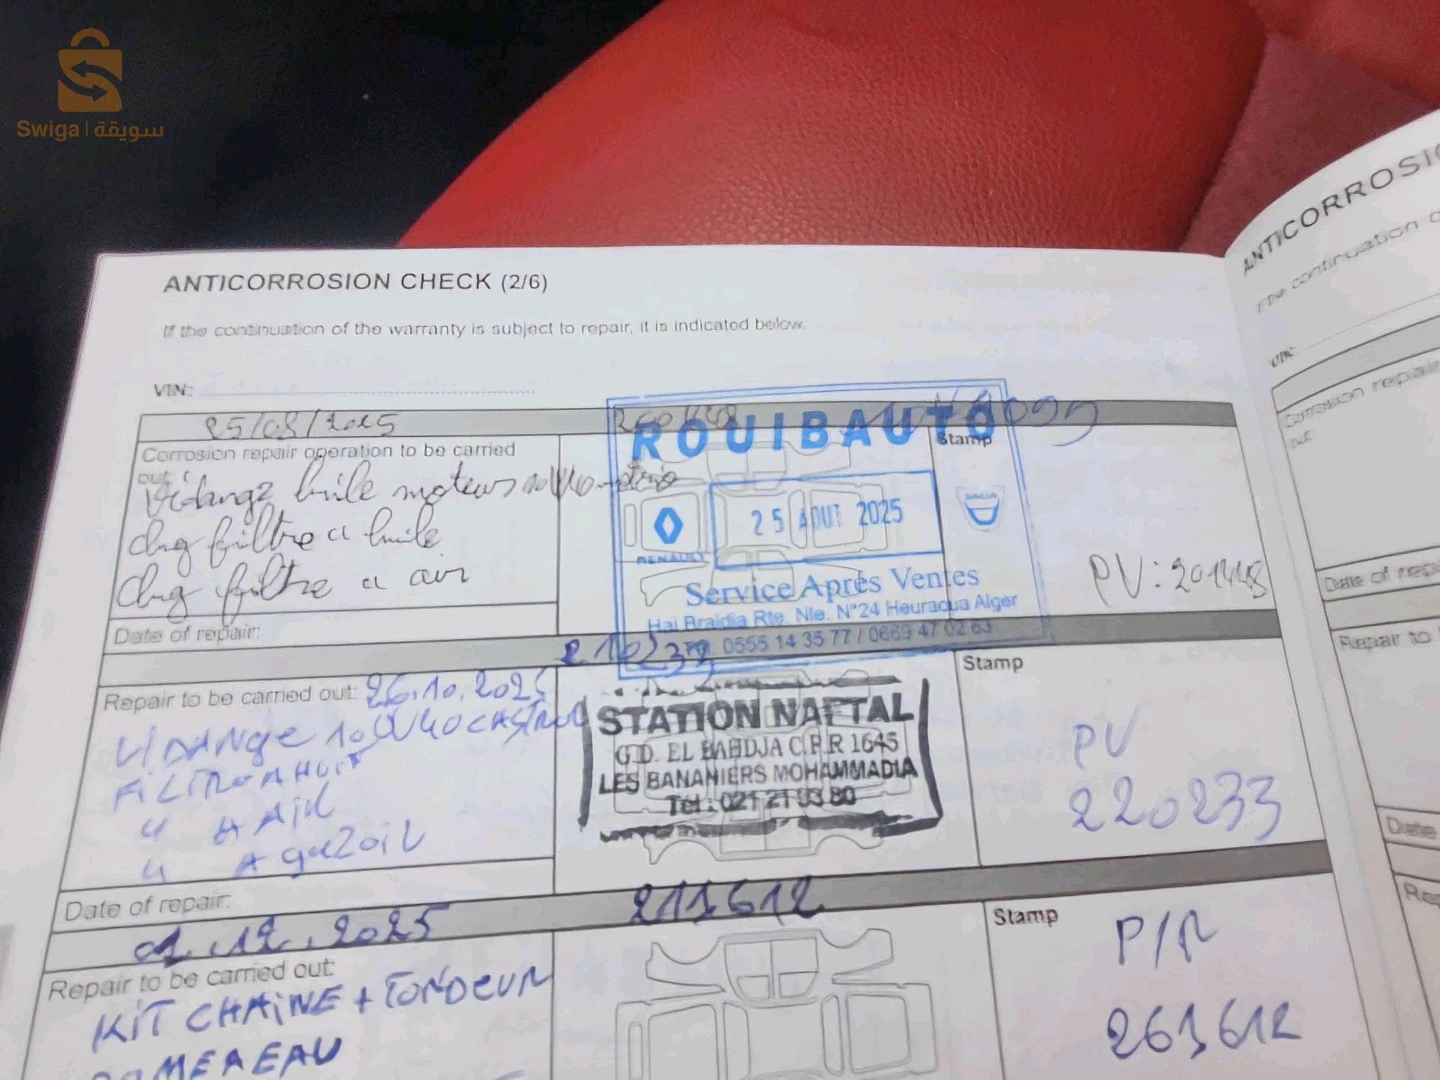 Swiga | سويقة
ANTICORROSION CHECK (2/6)
If the continuation of the warranty is subject to repair, it is indicated below.
VIN:
25/08/2025
Corrosion repair operation to be carried
out:
Vidange huile moteurs
chg filtre a huile
chg filtre a air
ROUIBAUTO
Stamp
25 AOUT 2025
RENAULT
DACIA
Service Aprés Ventes
Hai Braidia Rte. Nle. N°24 Heuraoua Alger
0555 14 35 77 / 0669 47 02 63
PV: 201448
Date of repair:
210233
Repair to be carried out: 26.10.2025
VIDANGE 10W40 CASTROL
FILTRE A HUIT
" A AIR
" A gazoil
STATION NAFTAL
G.D. EL BAHDJA C.P.R 1645
LES BANANIERS MOHAMMADIA
Tel : 021 21 93 80
Stamp
PV
220233
Date of repair:
01.12.2025
211612
Repair to be carried out:
KIT CHAINE + TONDEUR
Stamp
P/R
261612
ANTICORROSIO
the continuation o
VIN:
Corrosion repair
out:
Date of repa
Repair to
Date
Re